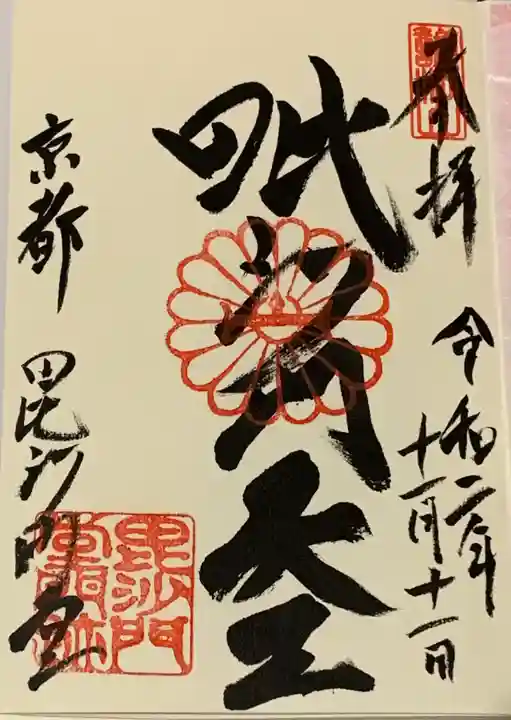 奉拝
令和二年
十一月十一日
毗沙門天王
京都 毘沙門堂
毘沙門
堂門跡